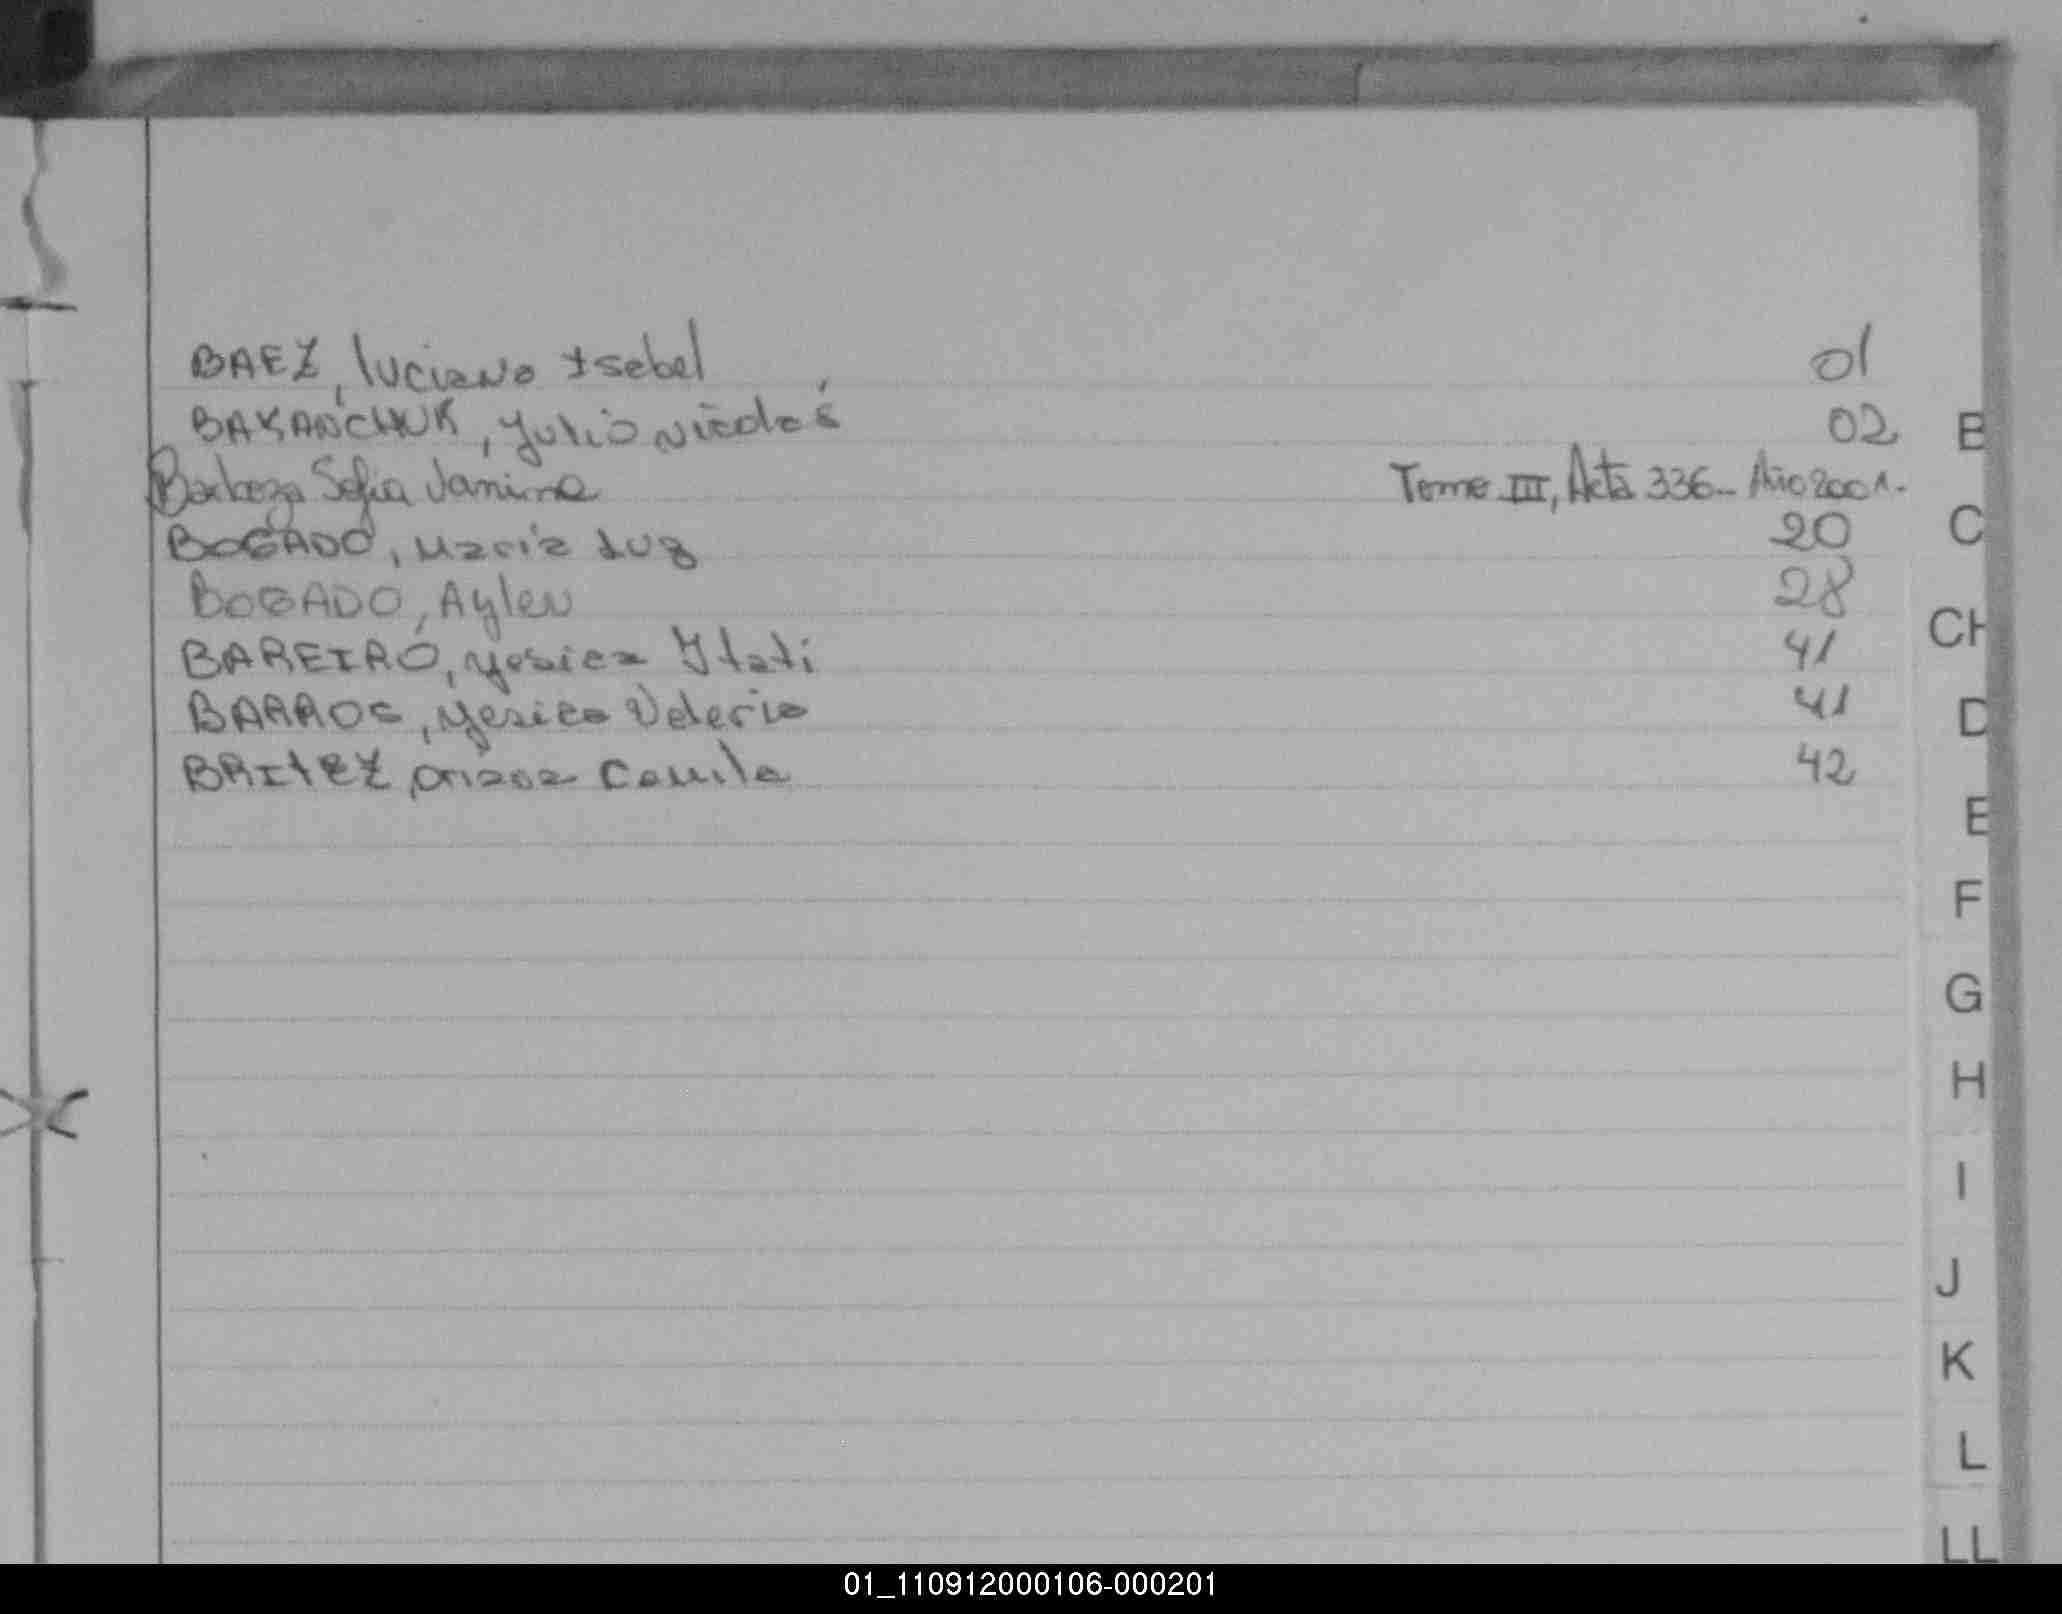 BAEZ, luciano Isabel 01
BAKANCHUK, Julio Nicolás 02
B
Barboza Sofia Janina Tomo III, Acta 336- Año 2001.
C
BOGADO, María Luz 20
BOGADO, Aylen 28
CH
BAREIRO, Yesica Itati 41
BARROS, Yesica Valeria 41
D
BRITEZ, Camila 42
E
F
G
H
I
J
K
L
LL
01_110912000106-000201